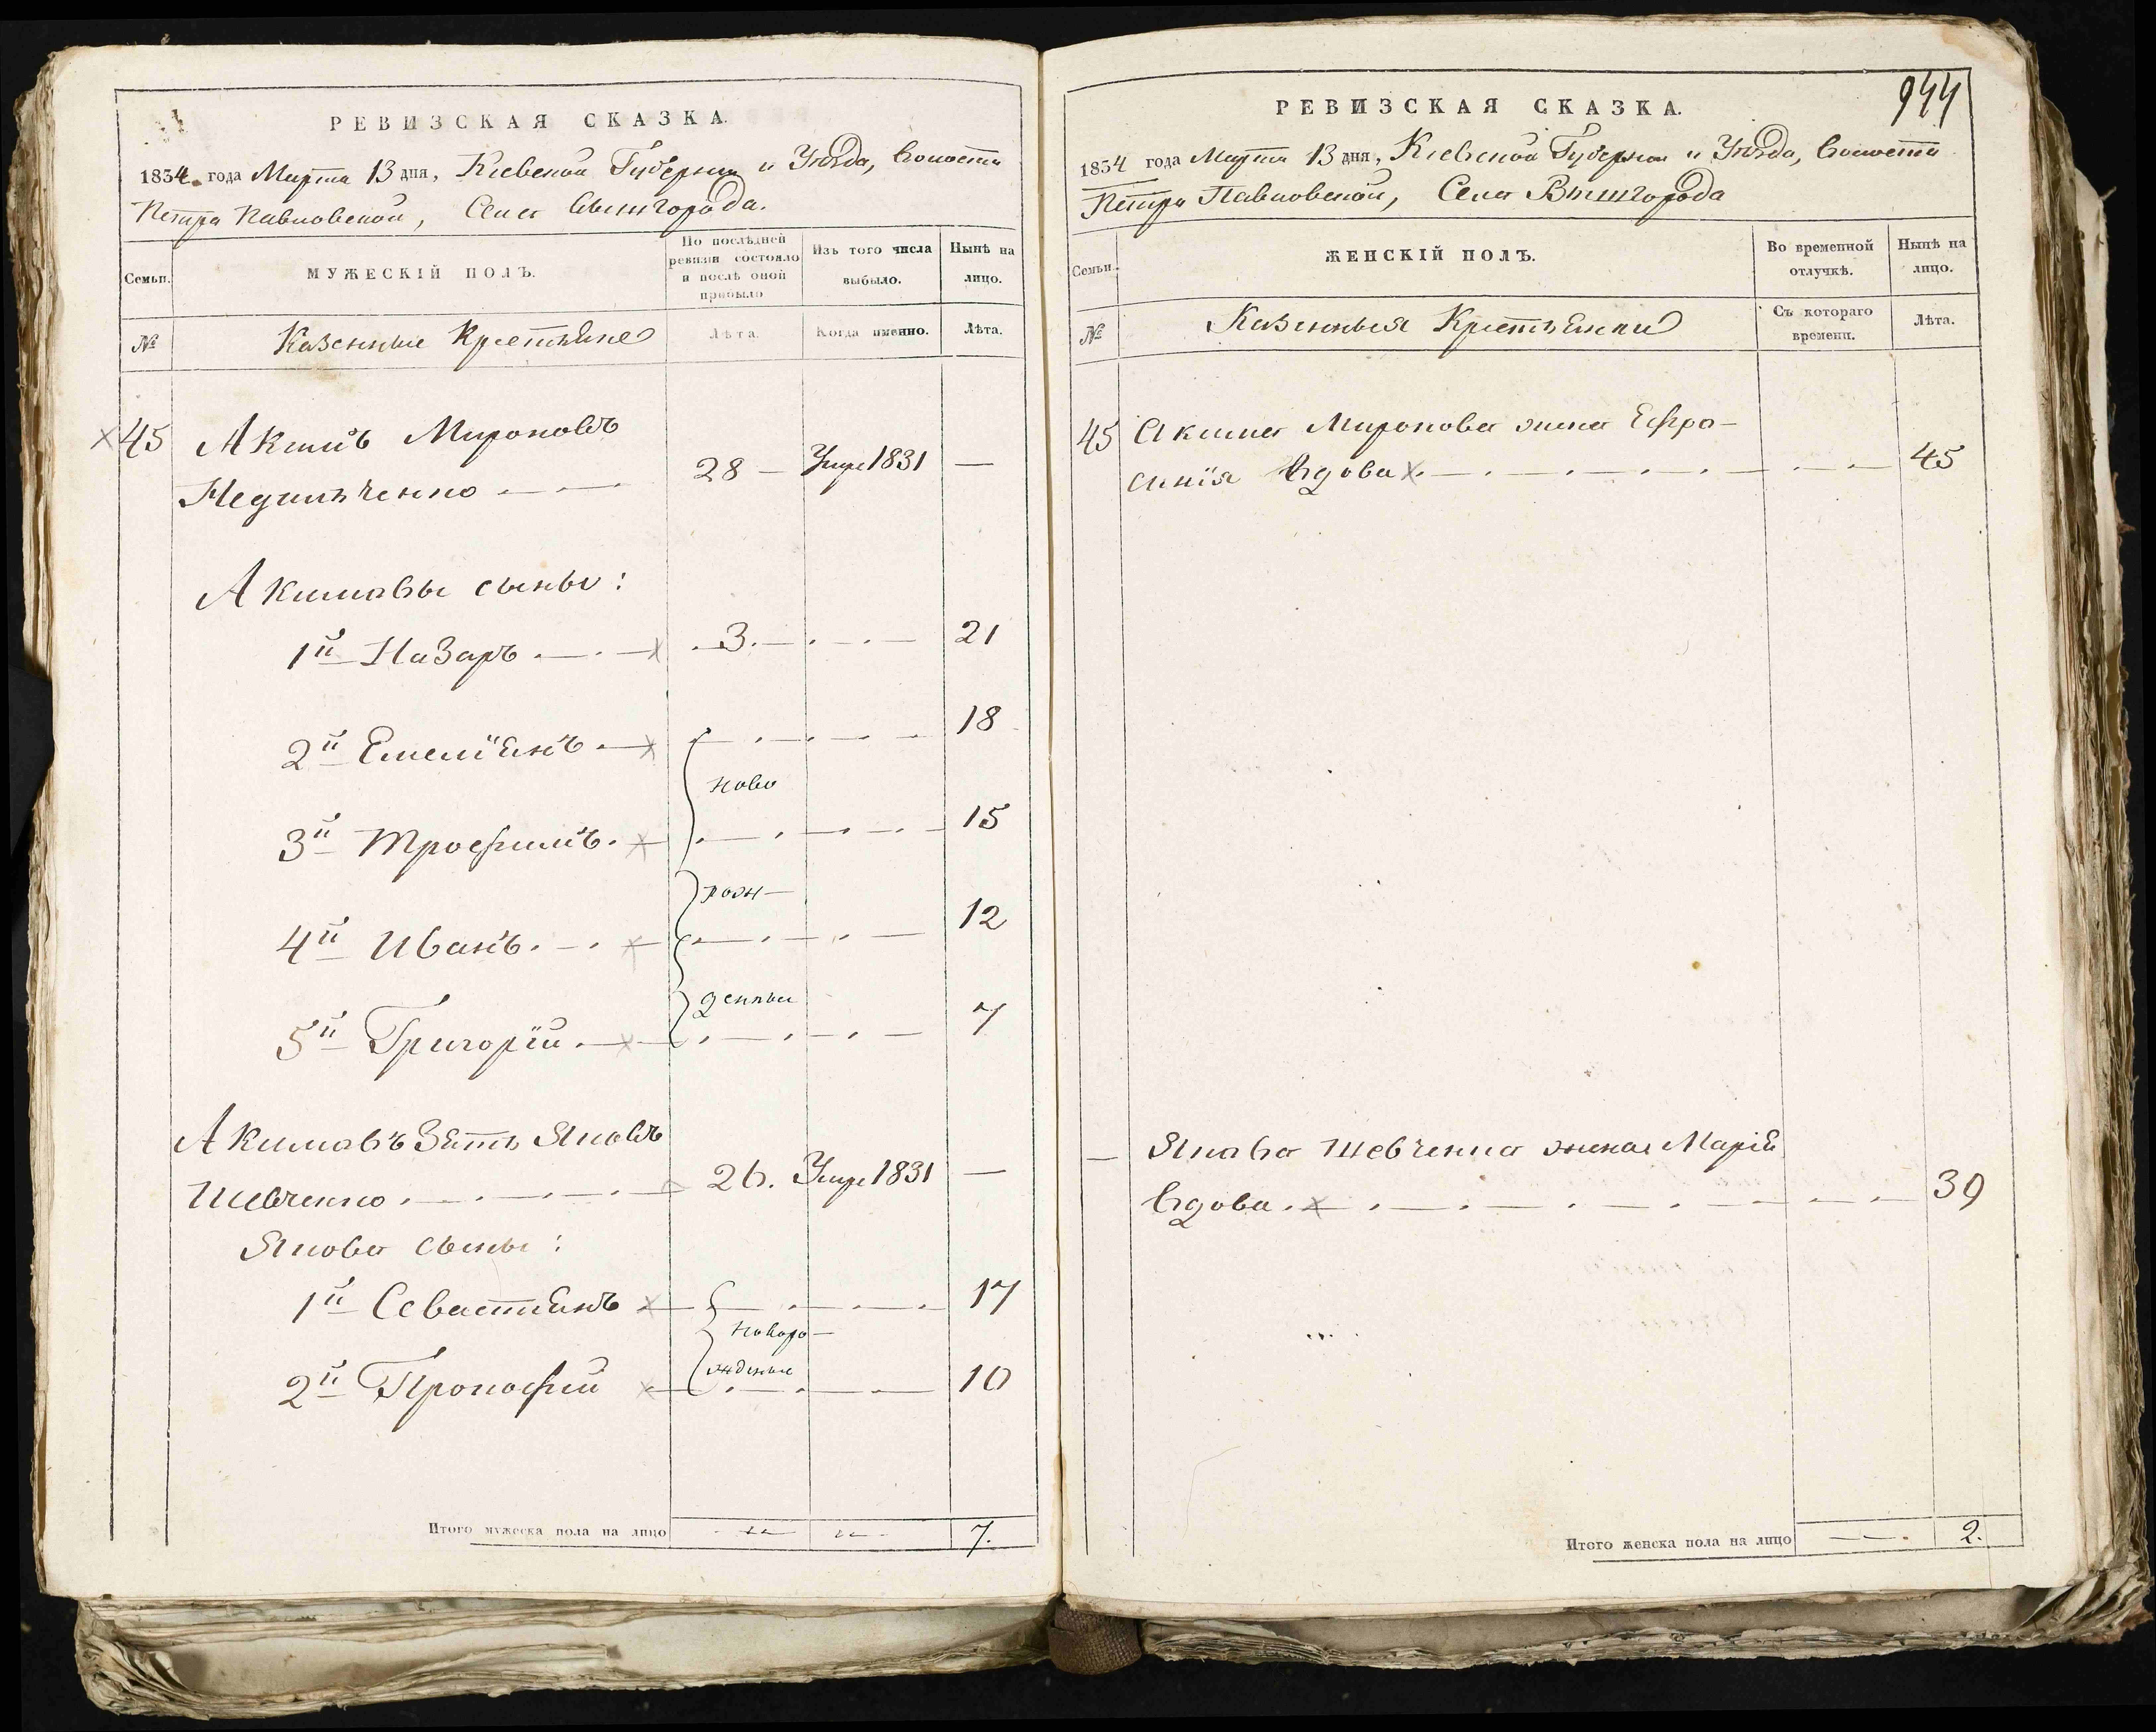 РЕВИЗСКАЯ СКАЗКА.
1834 года Марта 13 дня, Кіевской Губерніи и Уѣзда, Волости
Петро Павловской, Села Вышгорода.
Семьи.
МУЖЕСКІЙ ПОЛЪ.
По послѣдней
ревизіи состояло
и послѣ оной
прибыло
Изъ того числа
выбыло.
Нынѣ на
лицо.
№
Казенные Крестьяне
Лѣта.
Когда именно.
Лѣта.
45 Акимъ Мироновъ
28 — Умре 1831 —
Недилъченко
Акимовы сыны:
1й Назаръ 3. 21
2й Емелїянъ 18
ново
3й Трофимъ. 15
рож—
4й Иванъ. 12
денные
5й Григорїй 7
Акимовъ Зять Яковъ
Шевченко 26. Умре 1831 —
Якова сыны:
1й Севастіянъ 17
новоро—
жденные
2й Прокофій 10
Итого мужеска пола на лицо 7.
944
РЕВИЗСКАЯ СКАЗКА.
1834 года Марта 13 дня, Кіевской Губерніи и Уѣзда, Волости
Петро Павловской, Села Вышгорода
Семьи.
ЖЕНСКІЙ ПОЛЪ.
Во временной
отлучкѣ.
Нынѣ на
лицо.
№
Казенныя Крестьянки
Съ котораго
времени.
Лѣта.
45 Акима Миронова жена Ефро—
синїя Вдова 45
— Якова Шевченка жена Марія
Вдова. 39
Итого женска пола на лицо 2.